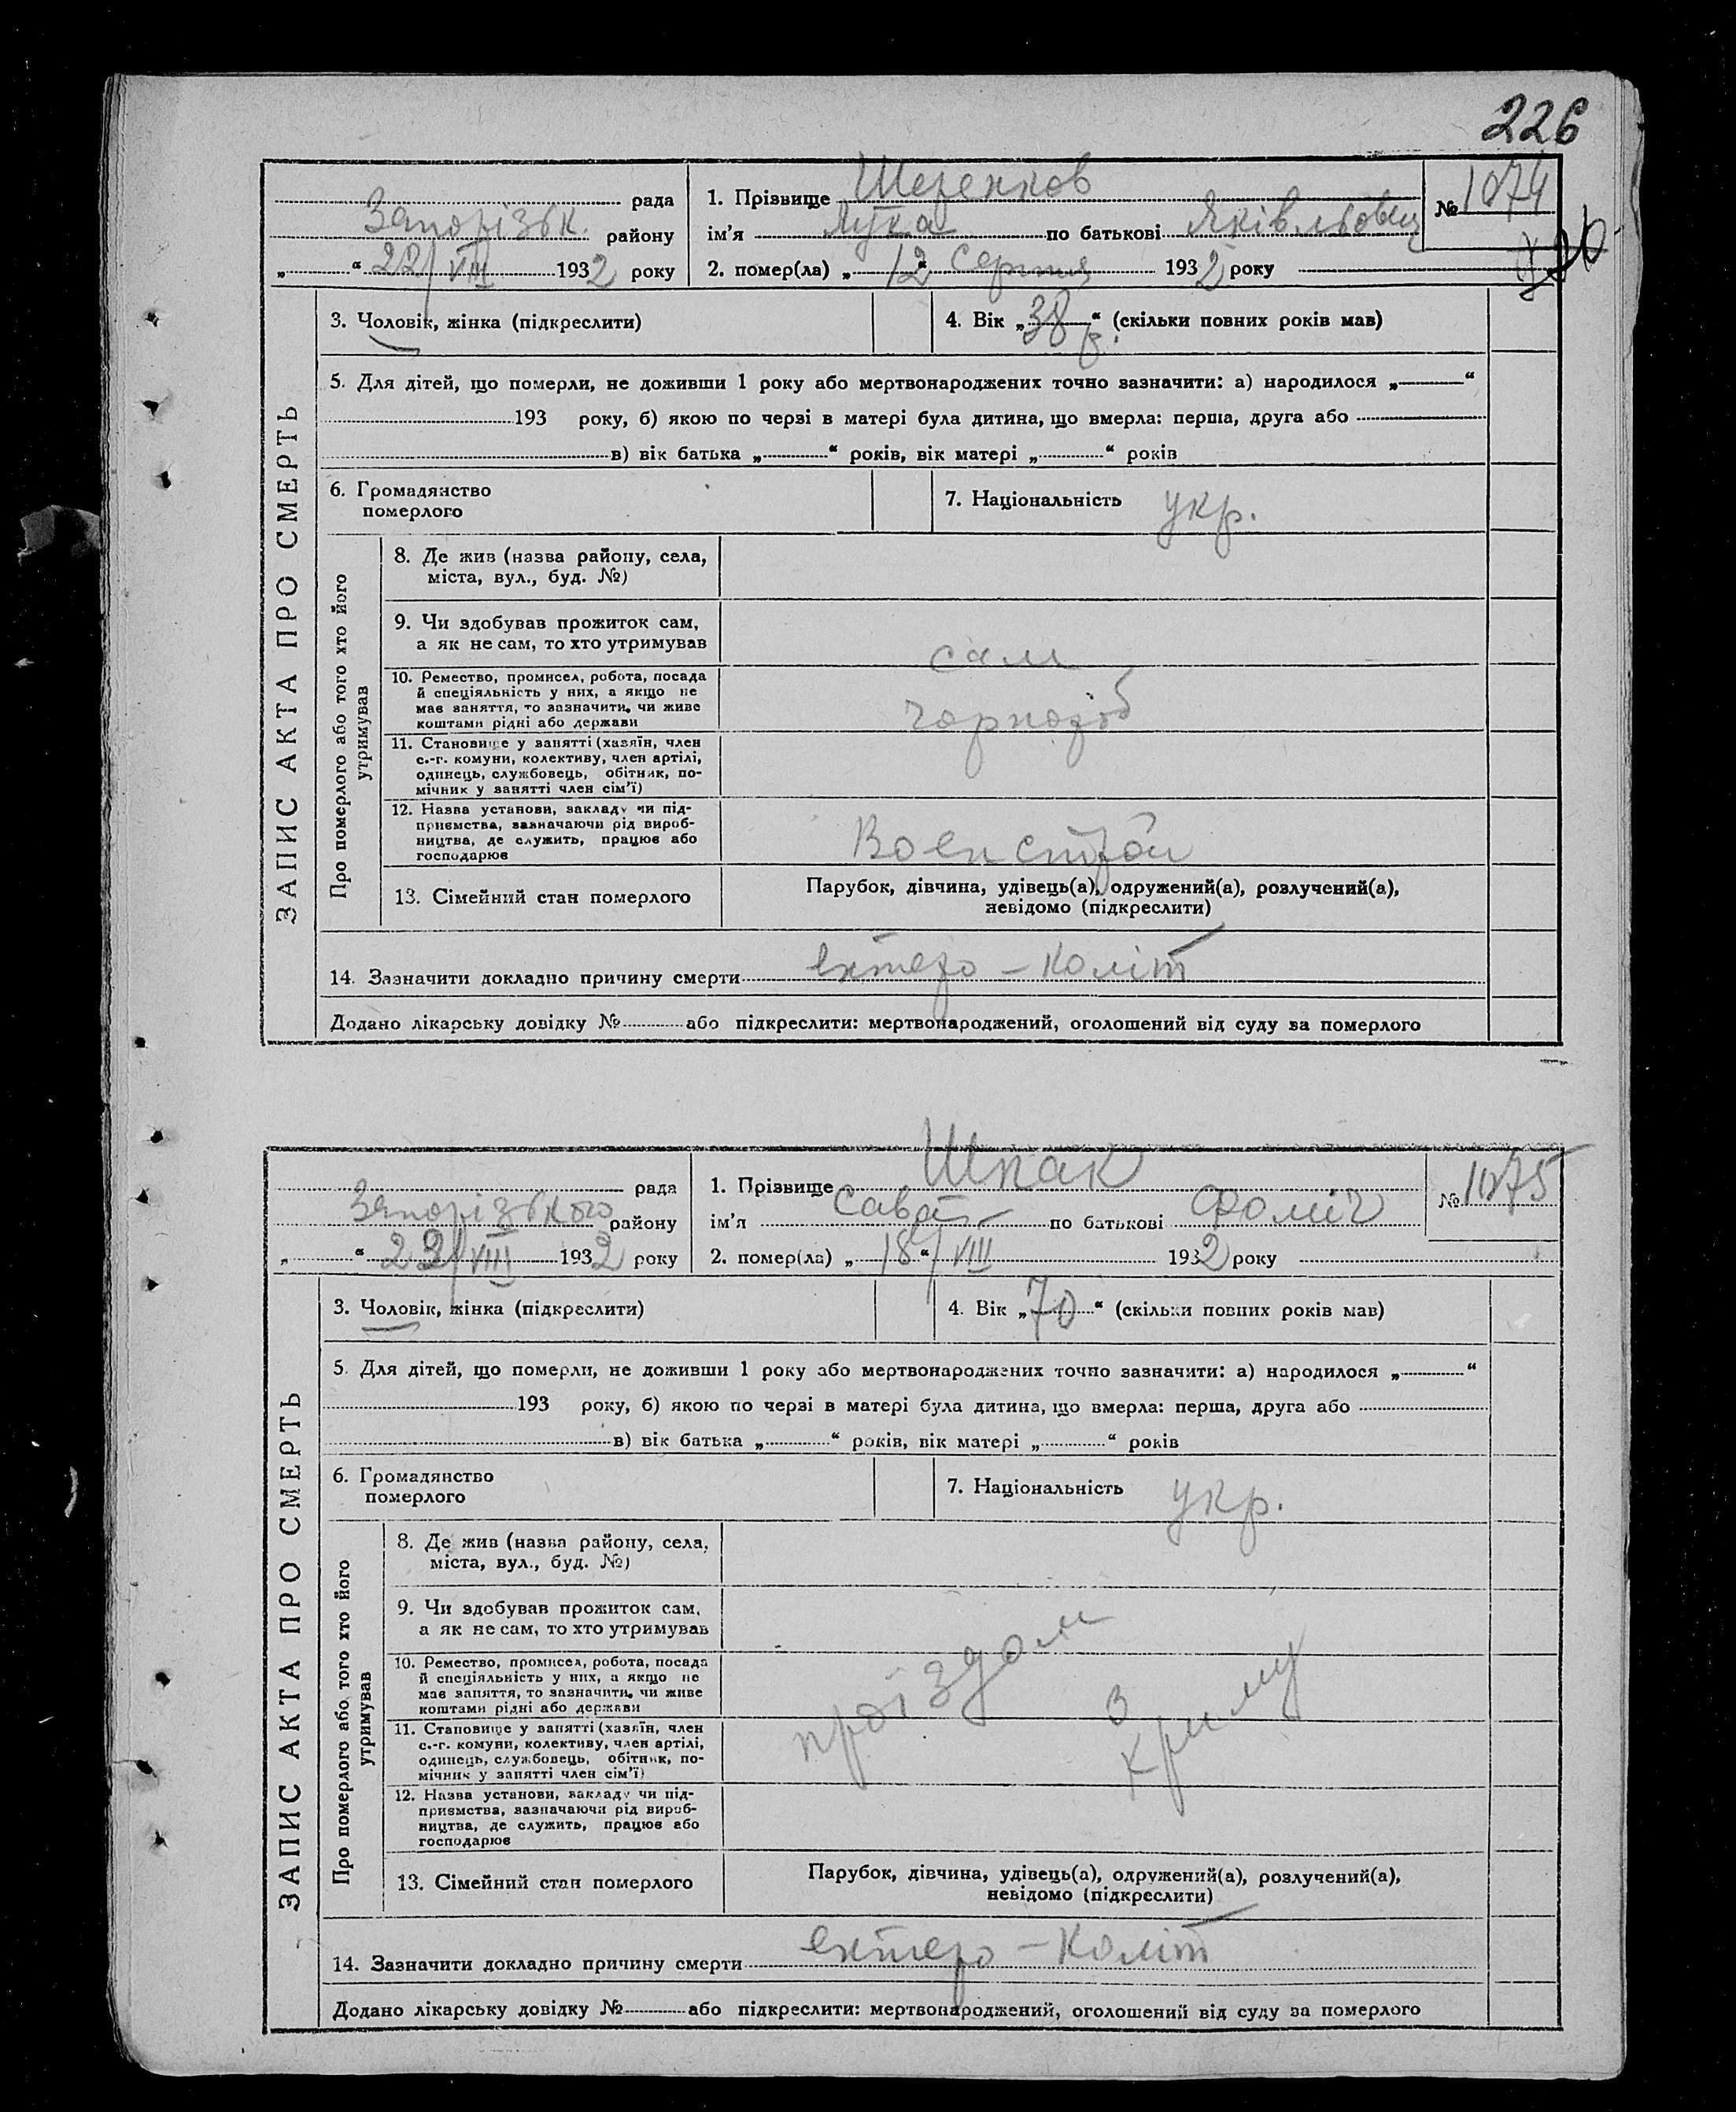 226
рада 1. Прізвище Шеренков № 1074
Запорізьк. району ім'я Лука по батькові Яківльович
„ “ 22/VIII 1932 року 2. помер(ла) „12“ Серпня 1932 року
3. Чоловік, жінка (підкреслити) 4. Вік „38 р.“ (скільки повних років мав)
5. Для дітей, що померли, не доживши 1 року або мертвонароджених точно зазначити: а) народилося „ “
193 року, б) якою по черзі в матері була дитина, що вмерла: перша, друга або
в) вік батька „ “ років, вік матері „ “ років
6. Громадянство
померлого
7. Національність укр.
ЗАПИС АКТА ПРО СМЕРТЬ
Про померлого або того хто його
утримував
8. Де жив (назва району, села,
міста, вул., буд. №)
9. Чи здобував прожиток сам,
а як не сам, то хто утримував
сам
10. Ремество, промисел, робота, посада
й спеціяльність у них, а якщо не
має заняття, то зазначити, чи живе
коштами рідні або держави
чорнороб
11. Становище у занятті (хазяїн, член
с.-г. комуни, колективу, член артілі,
одинець, службовець, обітник, по-
мічник у занятті член сім'ї)
12. Назва установи, закладу чи під-
приємства, зазначаючи рід вироб-
ництва, де служить, працює або
господарює
Военстрой
13. Сімейний стан померлого
Парубок, дівчина, удівець(а), одружений(а), розлучений(а),
невідомо (підкреслити)
14. Зазначити докладно причину смерти ентеро – Коліт
Додано лікарську довідку № або підкреслити: мертвонароджений, оголошений від суду за померлого
рада 1. Прізвище Шпак № 1075
Запорізького району ім'я Сава по батькові Фоміч
„ “ 22/VIII 1932 року 2. помер(ла) „18“/VIII 1932 року
3. Чоловік, жінка (підкреслити) 4. Вік „70“ (скільки повних років мав)
5. Для дітей, що померли, не доживши 1 року або мертвонароджених точно зазначити: а) народилося „ “
193 року, б) якою по черзі в матері була дитина, що вмерла: перша, друга або
в) вік батька „ “ років, вік матері „ “ років
6. Громадянство
померлого
7. Національність укр.
ЗАПИС АКТА ПРО СМЕРТЬ
Про померлого або того хто його
утримував
8. Де жив (назва району, села,
міста, вул., буд. №)
9. Чи здобував прожиток сам,
а як не сам, то хто утримував
10. Ремество, промисел, робота, посада
й спеціяльність у них, а якщо не
має заняття, то зазначити, чи живе
коштами рідні або держави
проїздом з Криму
11. Становище у занятті (хазяїн, член
с.-г. комуни, колективу, член артілі,
одинець, службовець, обітник, по-
мічник у занятті член сім'ї)
12. Назва установи, закладу чи під-
приємства, зазначаючи рід вироб-
ництва, де служить, працює або
господарює
13. Сімейний стан померлого
Парубок, дівчина, удівець(а), одружений(а), розлучений(а),
невідомо (підкреслити)
14. Зазначити докладно причину смерти ентеро – Коліт
Додано лікарську довідку № або підкреслити: мертвонароджений, оголошений від суду за померлого